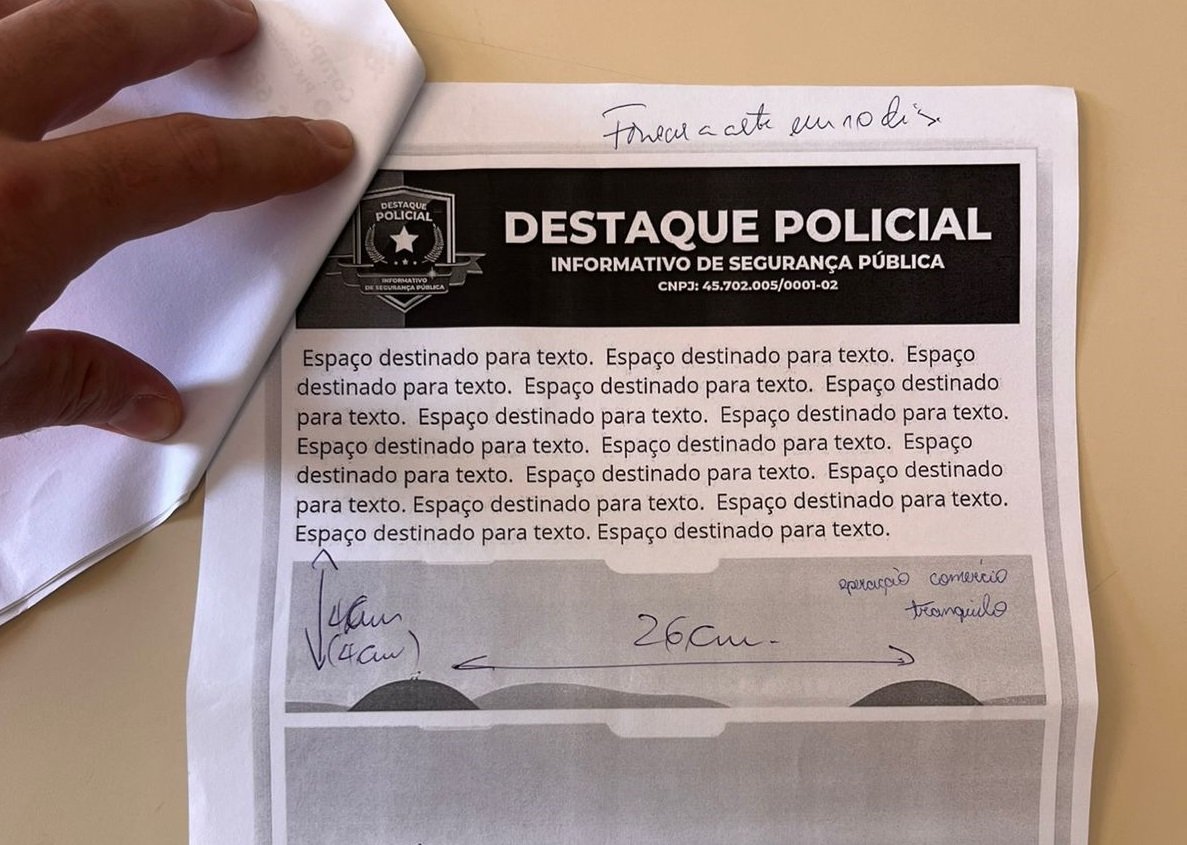 Fornecer a arte em 10 dias
DESTAQUE
POLICIAL
INFORMATIVO
DE SEGURANÇA PÚBLICA
DESTAQUE POLICIAL
INFORMATIVO DE SEGURANÇA PÚBLICA
CNPJ: 45.702.005/0001-02
Espaço destinado para texto. Espaço destinado para texto. Espaço
destinado para texto. Espaço destinado para texto. Espaço destinado
para texto. Espaço destinado para texto. Espaço destinado para texto.
Espaço destinado para texto. Espaço destinado para texto. Espaço
destinado para texto. Espaço destinado para texto. Espaço destinado
para texto. Espaço destinado para texto. Espaço destinado para texto.
Espaço destinado para texto. Espaço destinado para texto.
operação comércio
tranquilo
4cm
(4cm)
26cm